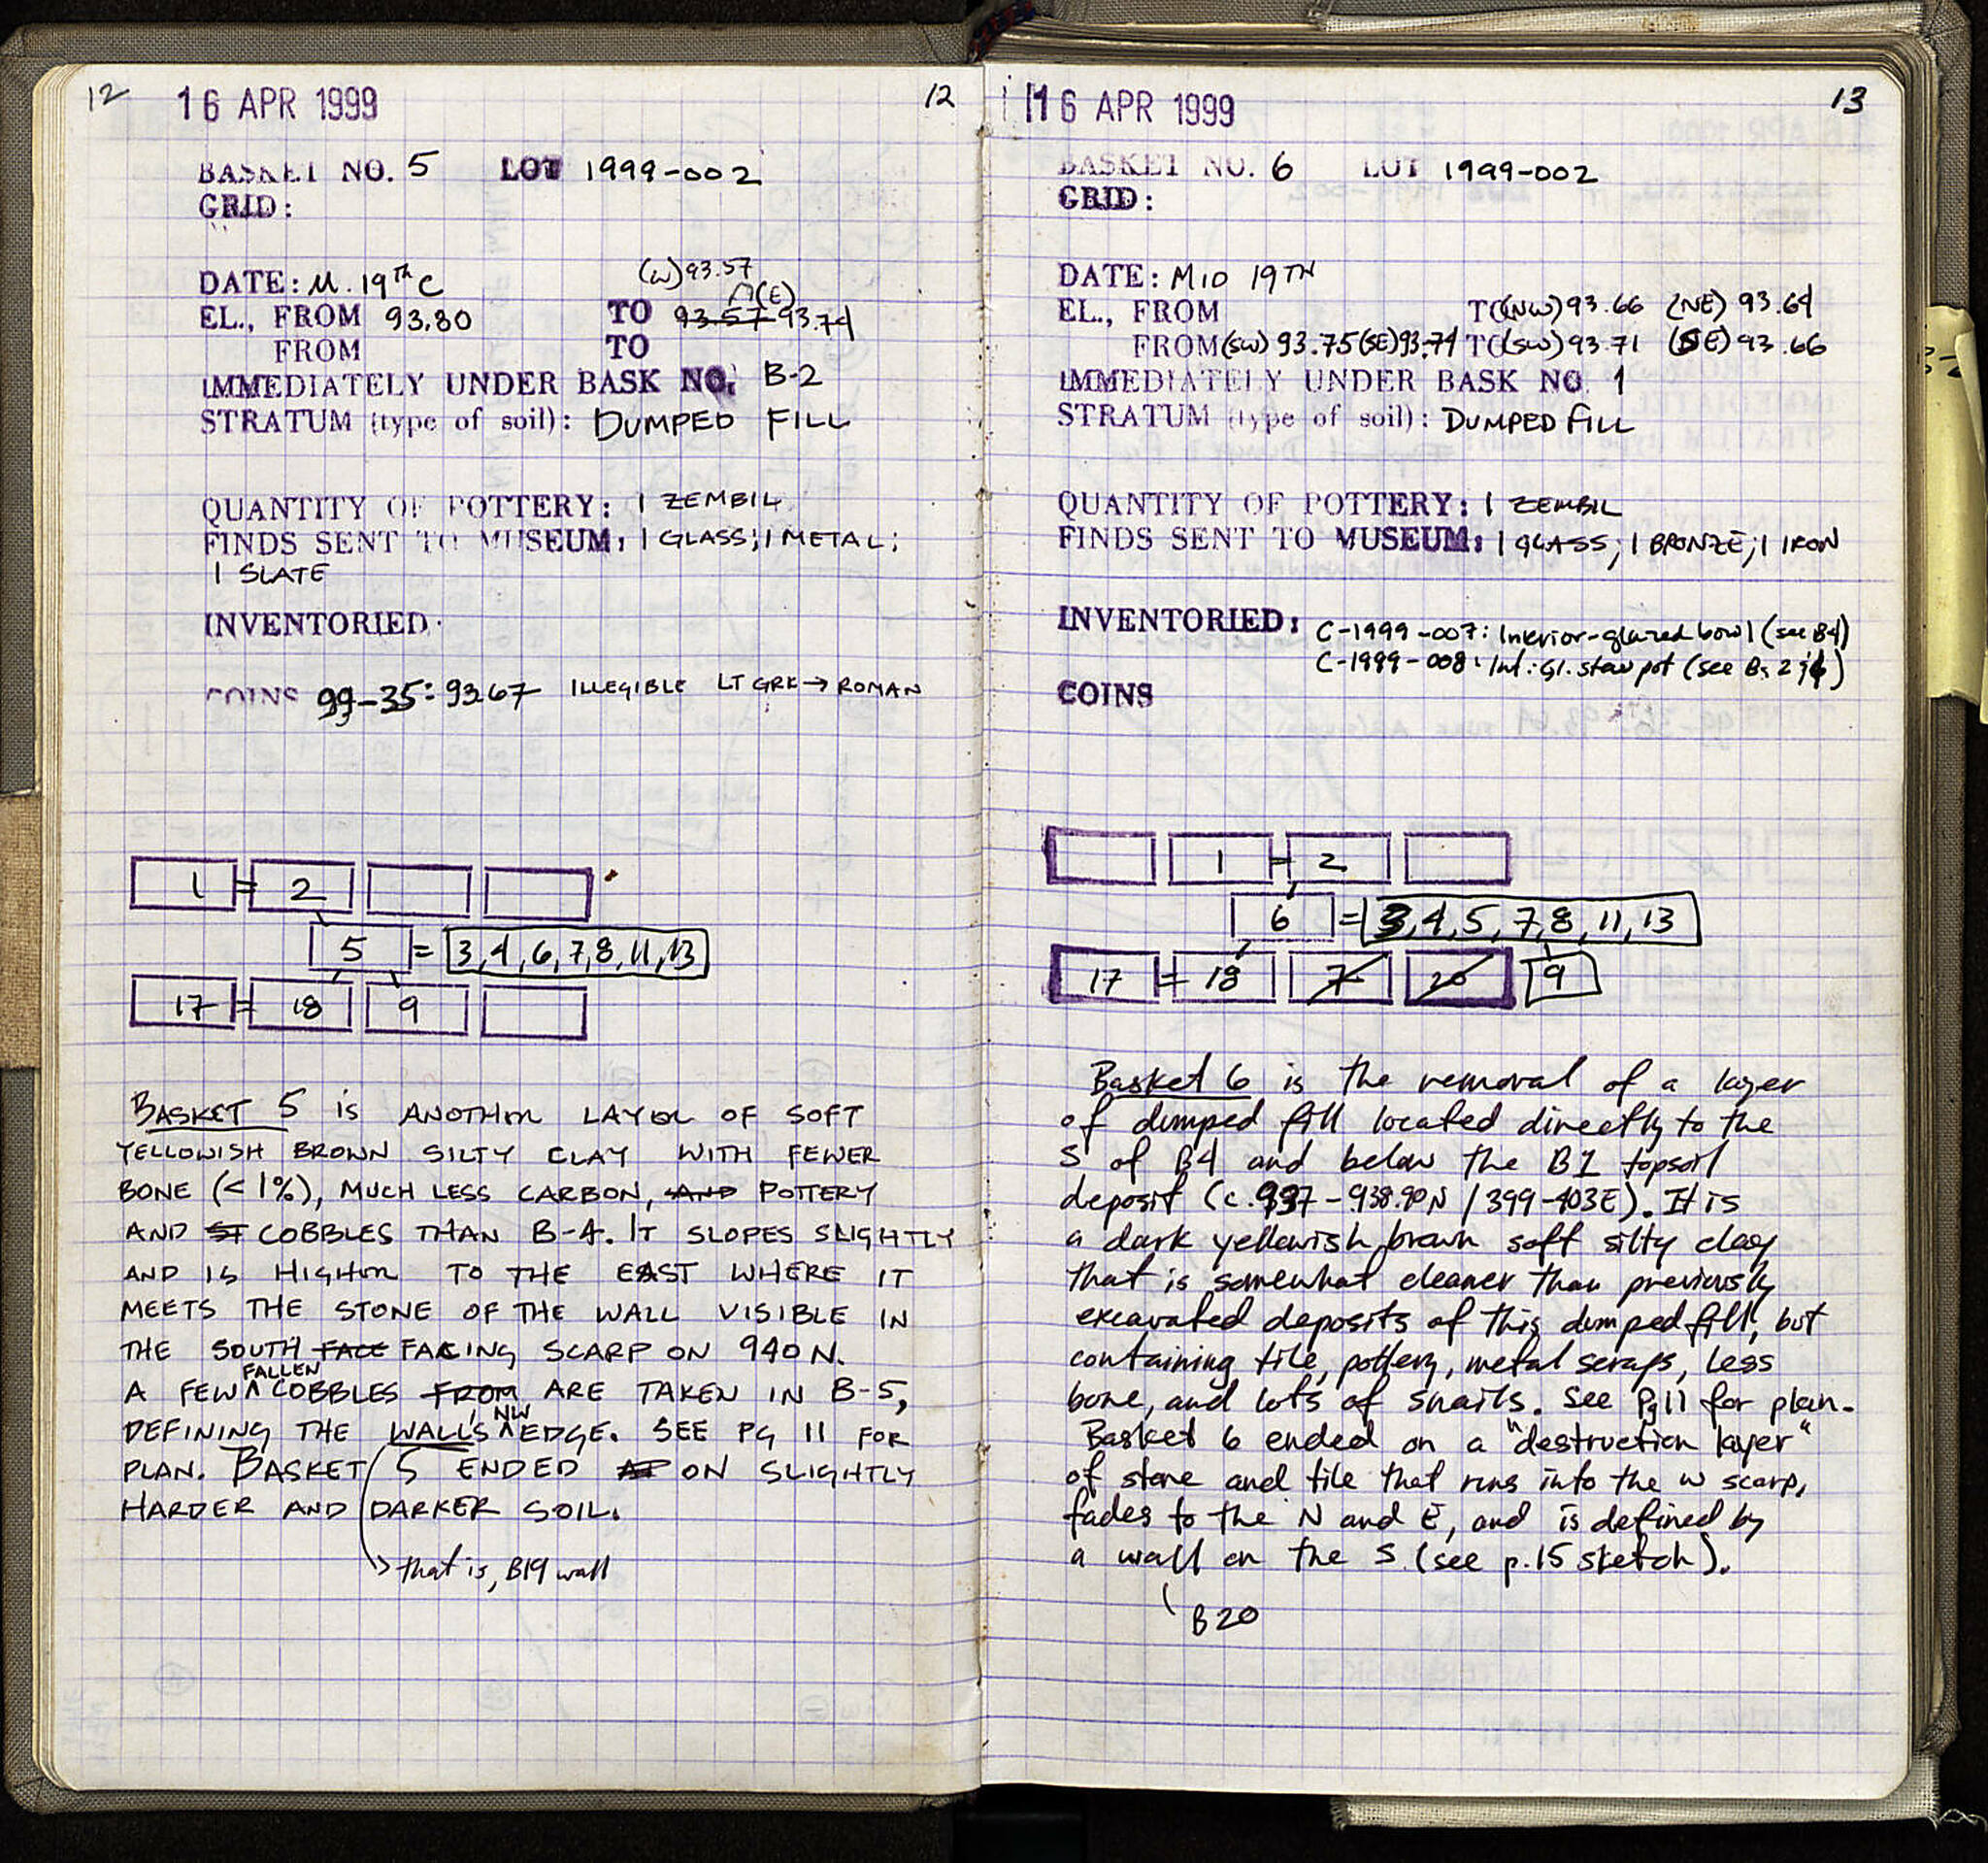 12
16 APR 1999
12
BASKET NO. 5 LOT 1999-002
GRID:
(W) 93.57
DATE: M. 19th C
^(E)
EL., FROM 93.80 TO 93.57 93.74
FROM TO
IMMEDIATELY UNDER BASK NO. B-2
STRATUM (type of soil): DUMPED FILL
QUANTITY OF POTTERY: 1 ZEMBIL
FINDS SENT TO MUSEUM: 1 GLASS; 1 METAL;
1 SLATE
INVENTORIED.
COINS 99-35: 93.67 ILLEGIBLE LT GRK → ROMAN
1 = 2
5 = 3,4,6,7,8,11,13
17 = 18 9
BASKET 5 IS ANOTHER LAYER OF SOFT
YELLOWISH BROWN SILTY CLAY WITH FEWER
BONE (<1%), MUCH LESS CARBON, AND POTTERY
AND ST COBBLES THAN B-4. IT SLOPES SLIGHTLY
AND IS HIGHER TO THE EAST WHERE IT
MEETS THE STONE OF THE WALL VISIBLE IN
THE SOUTH FACE FACING SCARP ON 940 N.
FALLEN
A FEW ^ COBBLES FROM ARE TAKEN IN B-5,
NW
DEFINING THE WALL'S ^ EDGE. SEE PG 11 FOR
PLAN. BASKET 5 ENDED ON SLIGHTLY
HARDER AND DARKER SOIL.
→ that is, B19 wall
16 APR 1999
13
BASKET NO. 6 LOT 1999-002
GRID:
DATE: MID 19TH
EL., FROM TO (NW) 93.66 (NE) 93.64
FROM (SW) 93.75 (SE) 93.74 TO (SW) 93.71 (SE) 93.66
IMMEDIATELY UNDER BASK NO 1
STRATUM (type of soil): DUMPED FILL
QUANTITY OF POTTERY: 1 ZEMBIL
FINDS SENT TO MUSEUM: 1 GLASS; 1 BRONZE; 1 IRON
INVENTORIED: C-1999-007: Interior-glazed bowl (see B4)
C-1999-008: Int. Gl. stew pot (see Bs 2 )
COINS
1 = 2
6 = 3,4,5,7,8,11,13
17 = 18 7 20 9
Basket 6 is the removal of a layer
of dumped fill located directly to the
S of B4 and below the B1 topsoil
deposit (c. 937-938.90 N / 399-403E). It is
a dark yellowish brown soft silty clay
that is somewhat cleaner than previously
excavated deposits of this dumped fill, but
containing tile, pottery, metal scraps, less
bone, and lots of snails. See Pg 11 for plan.
Basket 6 ended on a "destruction layer"
of stone and tile that runs into the W scarp,
fades to the N and E, and is defined by
a wall on the S (see p. 15 sketch).
B20